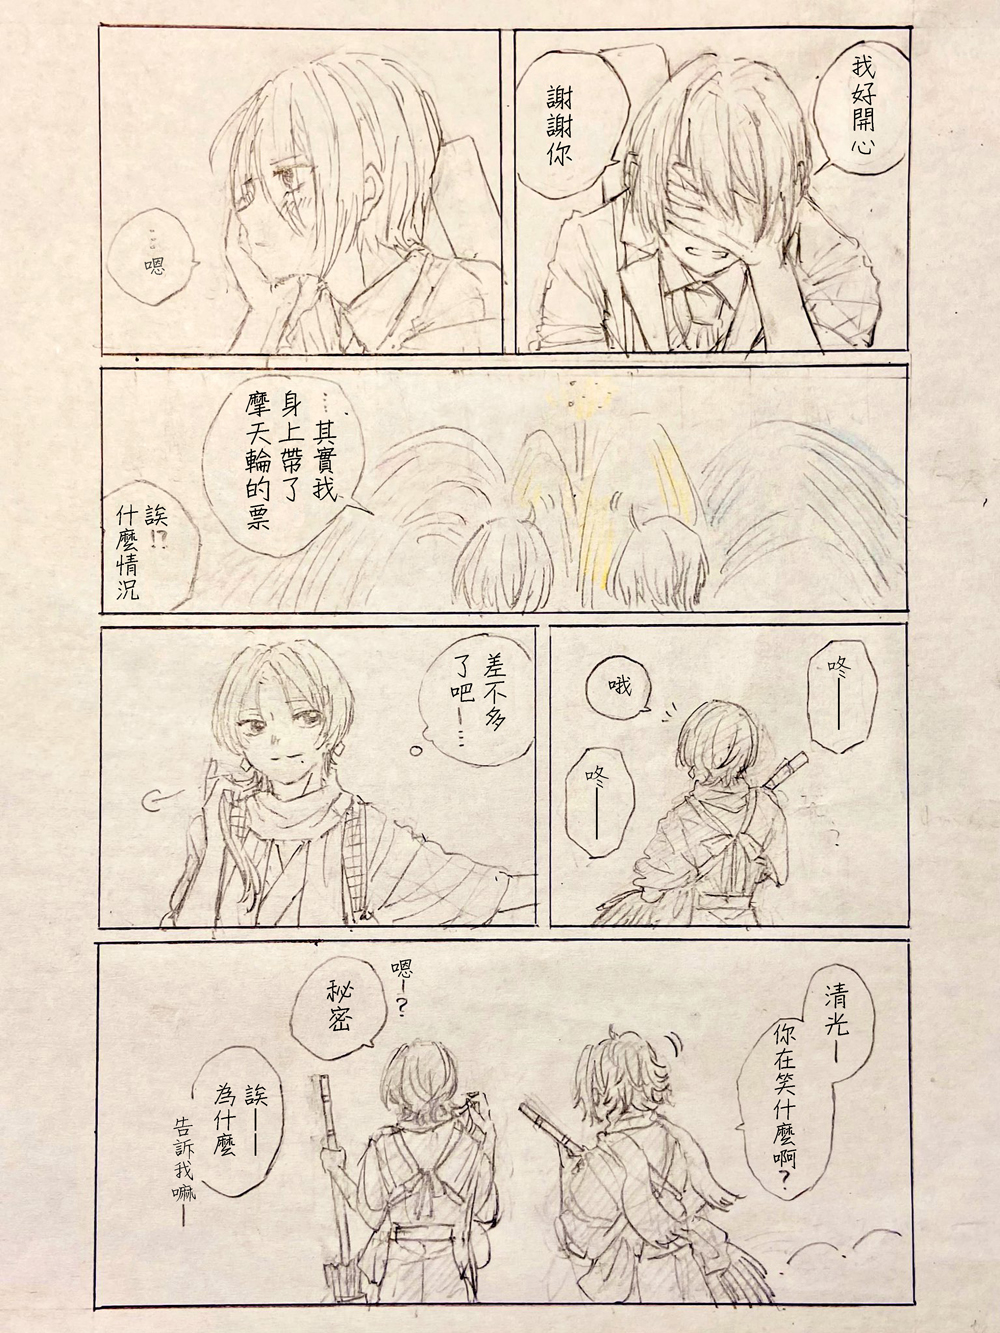 我好開心
謝謝你
…嗯
…其實我
身上帶了
摩天輪的票
誒!?
什麼情況
咚——
哦
咚——
差不多
了吧ー…
清光ー
你在笑什麼啊?
嗯ー?
秘密
誒——
為什麼
告訴我嘛ー